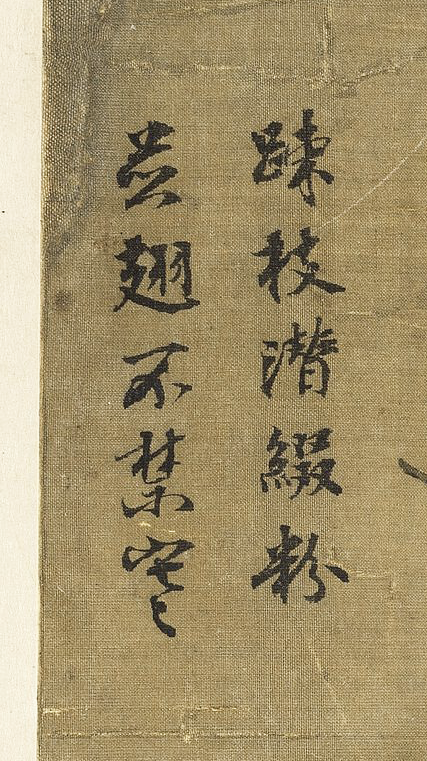 踈枝潛綴粉
翅不禁寒